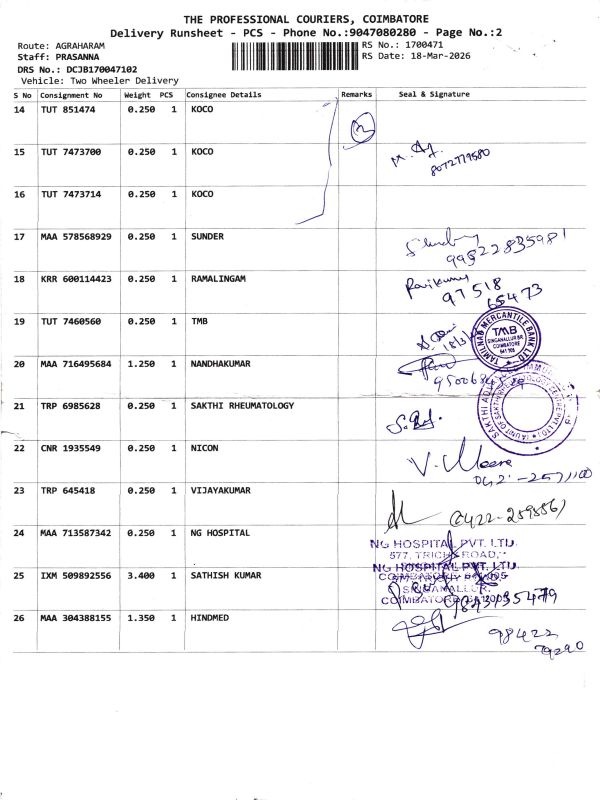 THE PROFESSIONAL COURIERS, COIMBATORE
Delivery Runsheet - PCS - Phone No.:9047080280 - Page No.:2
Route: AGRAHARAM
RS No.: 1700471
Staff: PRASANNA
RS Date: 18-Mar-2026
DRS No.: DCJB170047102
Vehicle: Two Wheeler Delivery
S No Consignment No Weight PCS Consignee Details Remarks Seal & Signature
14 TUT 851474 0.250 1 KOCO
15 TUT 7473700 0.250 1 KOCO
8072779580
16 TUT 7473714 0.250 1 KOCO
17 MAA 578568929 0.250 1 SUNDER
99522835981
18 KRR 600114423 0.250 1 RAMALINGAM
Ravikumar
97518
65473
19 TUT 7460560 0.250 1 TMB
TAMILNAD MERCANTILE BANK LTD
TMB
SINGANALLUR BR.
COIMBATORE
641 005
20 MAA 716495684 1.250 1 NANDHAKUMAR
21 TRP 6985628 0.250 1 SAKTHI RHEUMATOLOGY
22 CNR 1935549 0.250 1 NICON
V. Meera
23 TRP 645418 0.250 1 VIJAYAKUMAR
24 MAA 713587342 0.250 1 NG HOSPITAL
NG HOSPITAL PVT. LTD.
577, TRICHY ROAD,
25 IXM 509892556 3.400 1 SATHISH KUMAR
NG HOSPITAL PVT. LTD.
SINGANALLUR,
COIMBATORE
26 MAA 304388155 1.350 1 HINDMED
98422
79290